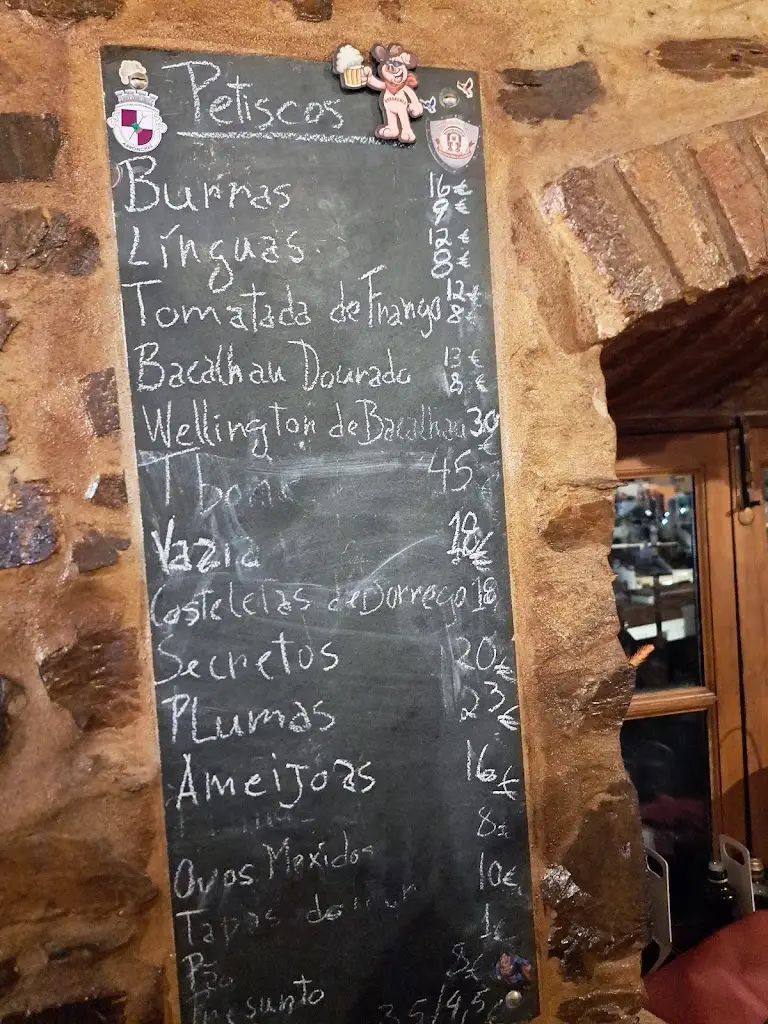 Petiscos
Burras 16€ 9€
Línguas 12€ 8€
Tomatada de Frango 12€ 8€
Bacalhau Dourado 13€ 8€
Wellington de Bacalhau 30€
T bone 45
Vazia 18€
Costeletas de Borrego 18
Secretos 20€
PLumas 23€
Ameijoas 16€
8€
Ovos Mexidos 10€
Tapas do 1€
Pão 8€
Presunto 3,5/4,5€